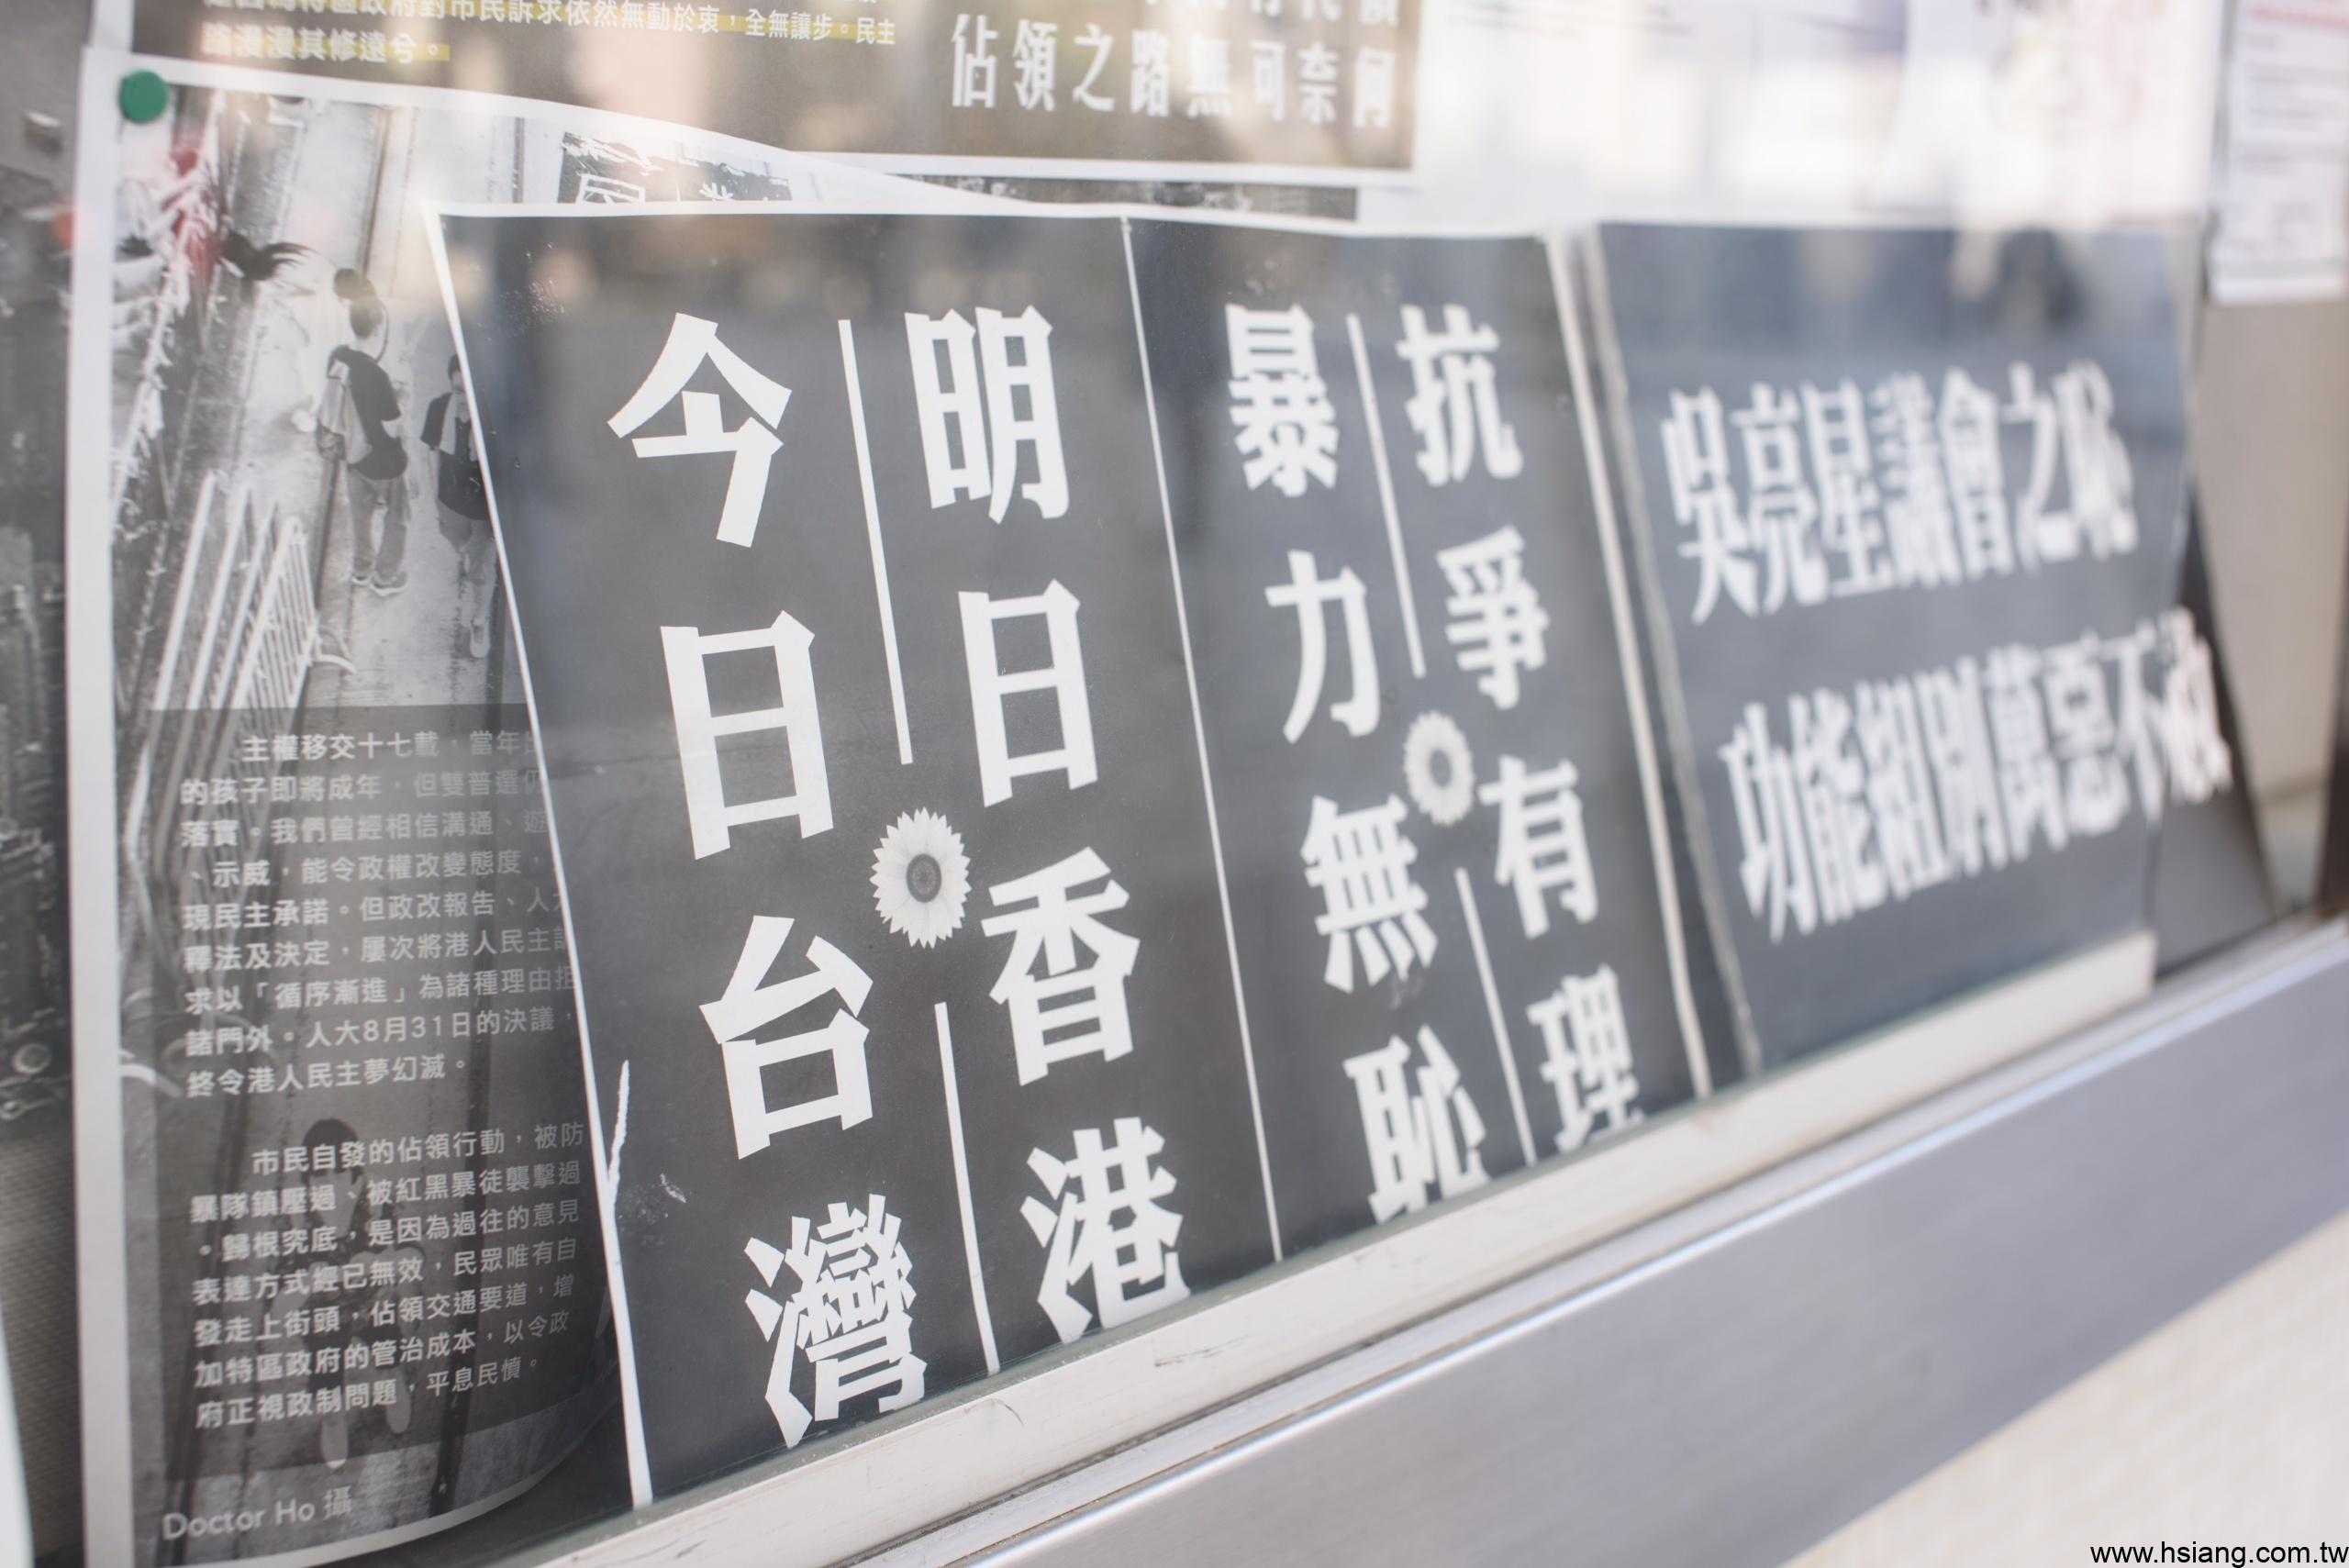 佔領之路無可奈何
全無讓步。民主
路漫漫其修遠兮。
主權移交十七載，當年
的孩子即將成年，但雙普選仍
落實。我們曾經相信溝通、遊
、示威，能令政權改變態度，
現民主承諾。但政改報告、人大
釋法及決定，屢次將港人民主
求以「循序漸進」為諸種理由拒
諸門外。人大8月31日的決議，
終令港人民主夢幻滅。
市民自發的佔領行動，被防
暴隊鎮壓過、被紅黑暴徒襲擊過
。歸根究底，是因為過往的意見
表達方式經已無效，民眾唯有自
發走上街頭，佔領交通要道，增
加特區政府的管治成本，以令政
府正視政制問題，平息民憤。
Doctor Ho 攝
今日台灣
明日香港
暴力無恥
抗爭有理
吳亮星議會之恥
功能組別萬惡不赦
www.hsiang.com.tw